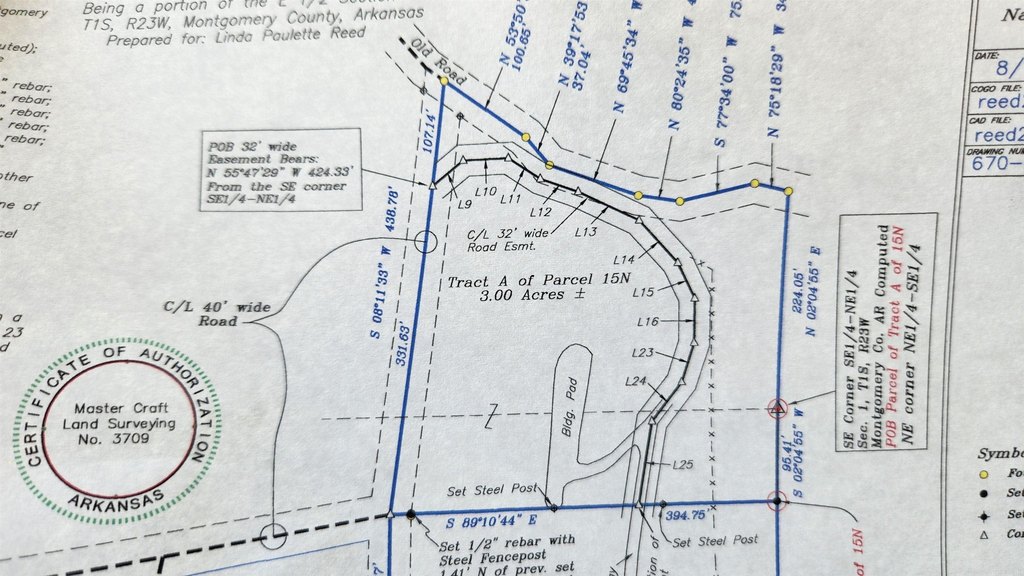 Being a portion of the E 1/2 Section
T1S, R23W, Montgomery County, Arkansas
Prepared for: Linda Paulette Reed
gomery
uted);
" rebar;
" rebar;
" rebar;
" rebar;
" rebar;
other
ne of
cel
n a
23
d
Old Road
N 53°50'
100.65'
N 39°17'53
37.04'
N 69°45'34" W
N 80°24'35" W
S 77°34'00" W 75.
N 75°18'29" W
107.14'
POB 32' wide
Easement Bears:
N 55°47'29" W 424.33'
From the SE corner
SE1/4-NE1/4
L9
L10
L11
L12
L13
C/L 32' wide
Road Esmt.
L14
L15
L16
L23
L24
L25
Tract A of Parcel 15N
3.00 Acres ±
S 08°11'33" W 438.78'
331.63'
C/L 40' wide
Road
224.05'
N 02°04'55" E
95.41'
S 02°04'55" W
SE Corner SE1/4-NE1/4
Sec. 1, T1S, R23W
Montgomery Co, AR Computed
POB Parcel of Tract A of 15N
NE corner NE1/4-SE1/4
CERTIFICATE OF AUTHORIZATION
Master Craft
Land Surveying
No. 3709
ARKANSAS
Bldg. Pad
Set Steel Post
S 89°10'44" E
394.75'
Set Steel Post
Set 1/2" rebar with
Steel Fencepost
1.41' N of prev. set
of 15N
DATE:
8/
COGO FILE:
reed
CAD FILE:
reed2
DRAWING NUM
670-
Symbo
Fo
Set
Set
Com